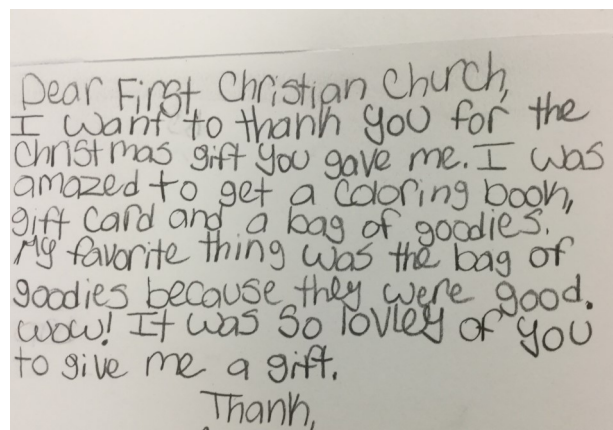 Dear First Christian Church,
I want to thank you for the
Christmas gift you gave me. I was
amazed to get a coloring book,
gift card and a bag of goodies.
My favorite thing was the bag of
goodies because they were good.
wow! It was so lovley of you
to give me a gift.
Thank,